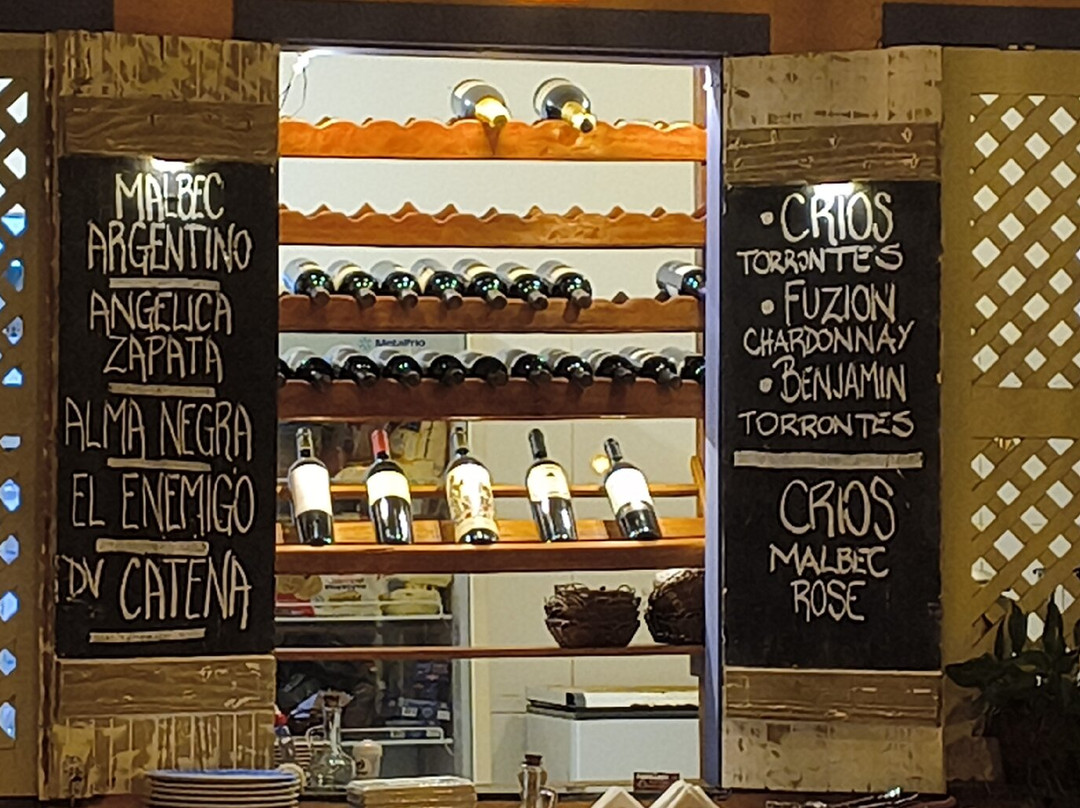 MALBEC
ARGENTINO
ANGELICA
ZAPATA
ALMA NEGRA
EL ENEMIGO
DV CATENA
MetalFrio
• CRIOS
TORRONTES
• FUZION
CHARDONNAY
• BENJAMIN
TORRONTES
CRIOS
MALBEC
ROSE